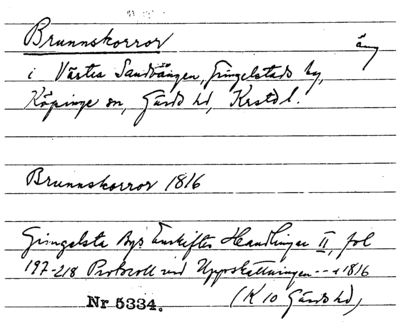 Brunnskorror äng
i Västra Sandvången, Gringelstads by,
Köpinge sn, Gärds hd, Krstd l.
Brunnskorror 1816
Gringelsta Bys Enskiftes Handlingar II, fol
197-218 Protocoll vid Uppställningen --- 1816
Nr 5334. (K 10 Gärds hd)